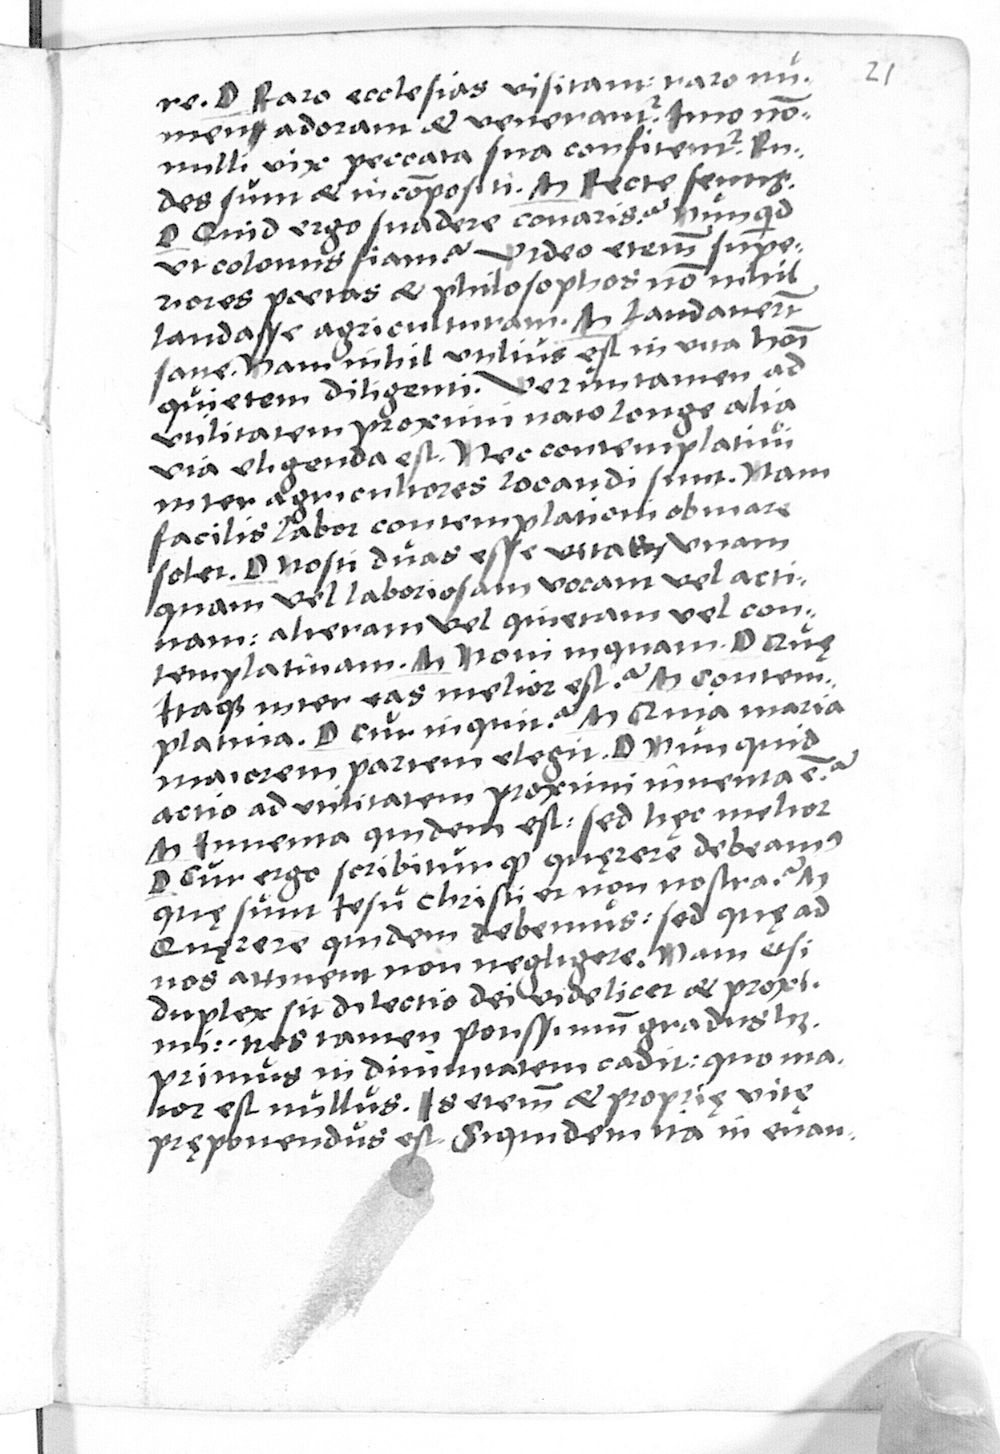 21
re. D Raro ecclesias visitant: raro nu-
men adorant & venerant᷑. Imo nō-
nulli vix peccata sua confitent᷑. Ru-
des sunt & incōpositi. M Recte sentis.
D Quid ergo suadere conaris? Nunqd
vt colonus fiam? Video etem̄ supe-
riores poetas & philosophos nō nihil
laudasse agriculturam. M Laudauerūt
sane. Nam nihil vtilius est in vita hoī
quietem diligenti. Veruntamen ad
vtilitatem proximi nato longe alia
via eligenda est. Nec contemplatiui
inter agricultores locandi sunt. Nam
facilis labor contemplationi obuiare
solet. D Nosti duas esse vitas vnam
quam vel laboriosam vocant vel acti-
uam: alteram vel quietam vel con-
templatiuam. M Noui inquam. D Quę
itaqꝫ inter eas melior est? M Contem-
platiua. D Cur inquit? M Quia maria
maiorem partem elegit. D Nunquid
actio ad vtilitatem proximi inuenta ē?
M Inuenta quidem est: sed hęc melior
D Cur ergo scribitur ꝙ quęrere debeamꝰ
quę sunt Iesu Christi et non nostra? M
Quęrere quidem debemus: sed quę ad
nos attinent non negligere. Nam etsi
duplex sit dilectio dei videlicet & proxi-
mi: tres tamen potissimū gradus hꝫ.
primus in diuinitatem cadit: quo ma-
ior est nullus. Is etem̄ & proprię vitę
pręponendus est. Siquidem ita in euan-